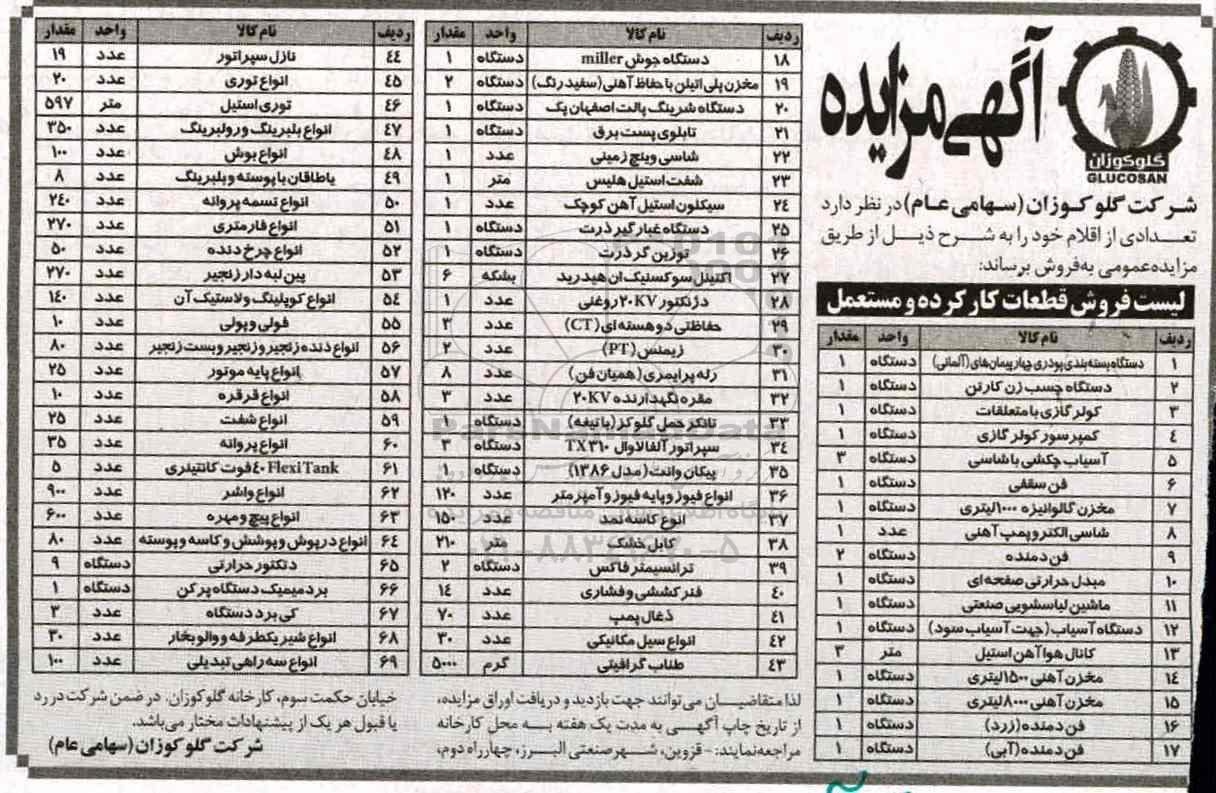 آگهی مزایده
گلوکوزان
GLUCOSAN
شرکت گلوکوزان (سهامی عام) در نظر دارد
تعدادی از اقلام خود را به شرح ذیل از طریق
مزایده عمومی به‌فروش برساند:
لیست فروش قطعات کارکرده و مستعمل
ردیف نام کالا واحد مقدار
۱ دستگاه بسته بندی پودری چهار پیمان‌های (آلمانی) دستگاه ۱
۲ دستگاه چسب زن کارتن دستگاه ۱
۳ کولر گازی با متعلقات دستگاه ۱
۴ کمپرسور کولر گازی دستگاه ۱
۵ آسیاب چکشی با شاسی دستگاه ۳
۶ فن سقفی دستگاه ۱
۷ مخزن گالوانیزه ۱۰۰۰لیتری دستگاه ۱
۸ شاسی الکتروپمپ آهنی عدد ۱
۹ فن دمنده دستگاه ۲
۱۰ مبدل حرارتی صفحه ای دستگاه ۱
۱۱ ماشین لباسشویی صنعتی دستگاه ۱
۱۲ دستگاه آسیاب (جهت آسیاب سود) دستگاه ۱
۱۳ کانال هوا آهن استیل متر ۳
۱۴ مخزن آهنی ۱۵۰۰لیتری دستگاه ۱
۱۵ مخزن آهنی ۸۰۰۰لیتری دستگاه ۱
۱۶ فن دمنده (زرد) دستگاه ۱
۱۷ فن دمنده (آبی) دستگاه ۱
ردیف نام کالا واحد مقدار
۱۸ دستگاه جوش miller دستگاه ۱
۱۹ مخزن پلی اتیلن با حفاظ آهنی (سفید رنگ) دستگاه ۲
۲۰ دستگاه شرینگ پالت اصفهان پک دستگاه ۱
۲۱ تابلوی پست برق دستگاه ۱
۲۲ شاسی وینچ زمینی عدد ۱
۲۳ شفت استیل هلیس متر ۱
۲۴ سیکلون استیل آهن کوچک عدد ۱
۲۵ دستگاه غبارگیر ذرت دستگاه ۱
۲۶ توزین گر ذرت دستگاه ۱
۲۷ اکتینل سوکسنیک ان هیدرید بشکه ۶
۲۸ دژنکتور ۲۰KV روغنی عدد ۱
۲۹ حفاظتی دو هسته ای (CT) عدد ۳
۳۰ زیمنس (PT) عدد ۲
۳۱ رله پرایمری (همیان فن) عدد ۸
۳۲ مقره نگهدارنده ۲۰KV عدد ۳
۳۳ تانکر حمل گلوکز (با تیغه) دستگاه ۱
۳۴ سپراتور آلفالاوال TX۳۱۰ دستگاه ۳
۳۵ پیکان وانت (مدل ۱۳۸۶) دستگاه ۱
۳۶ انواع فیوز و پایه فیوز و آمپرمتر عدد ۱۲۰
۳۷ انوع کاسه نمد عدد ۱۵۰
۳۸ کابل خشک متر ۲۱۰
۳۹ ترانسیمتر فاکس دستگاه ۲
۴۰ فنر کششی و فشاری عدد ۱۴
۴۱ ذغال پمپ عدد ۷۰
۴۲ انواع سیل مکانیکی عدد ۳۰
۴۳ طناب گرافیتی گرم ۵۰۰۰
ردیف نام کالا واحد مقدار
۴۴ نازل سپراتور عدد ۱۹
۴۵ انواع توری عدد ۲۰
۴۶ توری استیل متر ۵۹۷
۴۷ انواع بلبرینگ و رولبرینگ عدد ۳۵۰
۴۸ انواع بوش عدد ۱۰۰
۴۹ یاطاقان با پوسته و بلبرینگ عدد ۸
۵۰ انواع تسمه پروانه عدد ۲۴۰
۵۱ انواع فارمتری عدد ۲۷۰
۵۲ انواع چرخ دنده عدد ۵۰
۵۳ پین لبه دار زنجیر عدد ۲۷۰
۵۴ انواع کوپلینگ و لاستیک آن عدد ۱۴۰
۵۵ فولی و پولی عدد ۱۰
۵۶ انواع دنده زنجیر و زنجیر و بست زنجیر عدد ۸۰
۵۷ انواع پایه موتور عدد ۲۵
۵۸ انواع قرقره عدد ۱۰
۵۹ انواع شفت عدد ۲۵
۶۰ انواع پروانه عدد ۳۵
۶۱ FlexiTank ۴۰فوت کانتینری عدد ۵
۶۲ انواع واشر عدد ۹۰۰
۶۳ انواع پیچ و مهره عدد ۶۰۰
۶۴ انواع درپوش و پوشش و کاسه و پوسته عدد ۸۰
۶۵ دتکتور حرارتی دستگاه ۹
۶۶ برد میمیک دستگاه پرکن دستگاه ۱
۶۷ کی برد دستگاه عدد ۳
۶۸ انواع شیر یکطرفه و والو بخار عدد ۳۰
۶۹ انواع سه راهی تبدیلی عدد ۱۰۰
لذا متقاضیان می‌توانند جهت بازدید و دریافت اوراق مزایده،
از تاریخ چاپ آگهی به مدت یک هفته به محل کارخانه
مراجعه‌نمایند: - قزوین، شهر صنعتی البرز، چهارراه دوم،
خیابان حکمت سوم، کارخانه گلوکوزان. در ضمن شرکت در رد
یا قبول هر یک از پیشنهادات مختار می‌باشد.
شرکت گلوکوزان (سهامی عام)
پایگاه اطلاع رسانی مناقصه و مزایده
۰۲۱-۸۸۳۴۹۶۷۰-۵